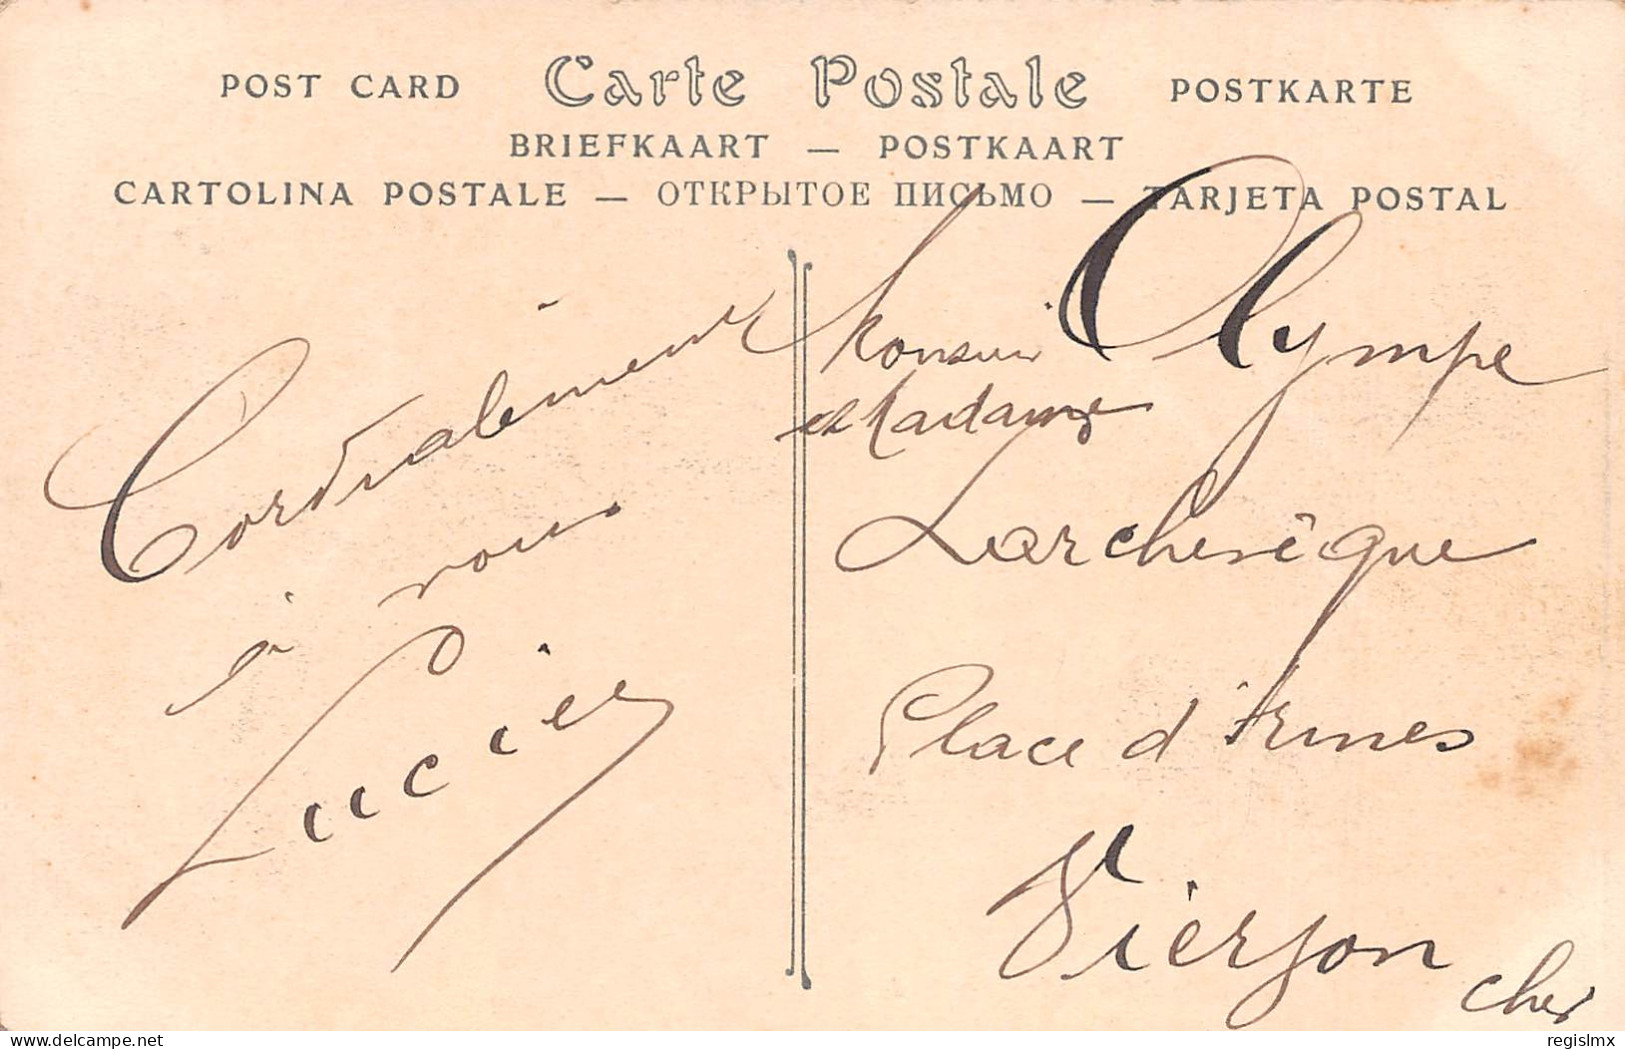 POST CARD Carte Postale POSTKARTE
BRIEFKAART — POSTKAART
CARTOLINA POSTALE — ОТКРЫТОЕ ПИСЬМО — TARJETA POSTAL
Cordialement
à vous
Lucien
Monsieur Olympe
et Madame
Larchevêque
Place d'Armes
Vierzon
Cher
regislmx